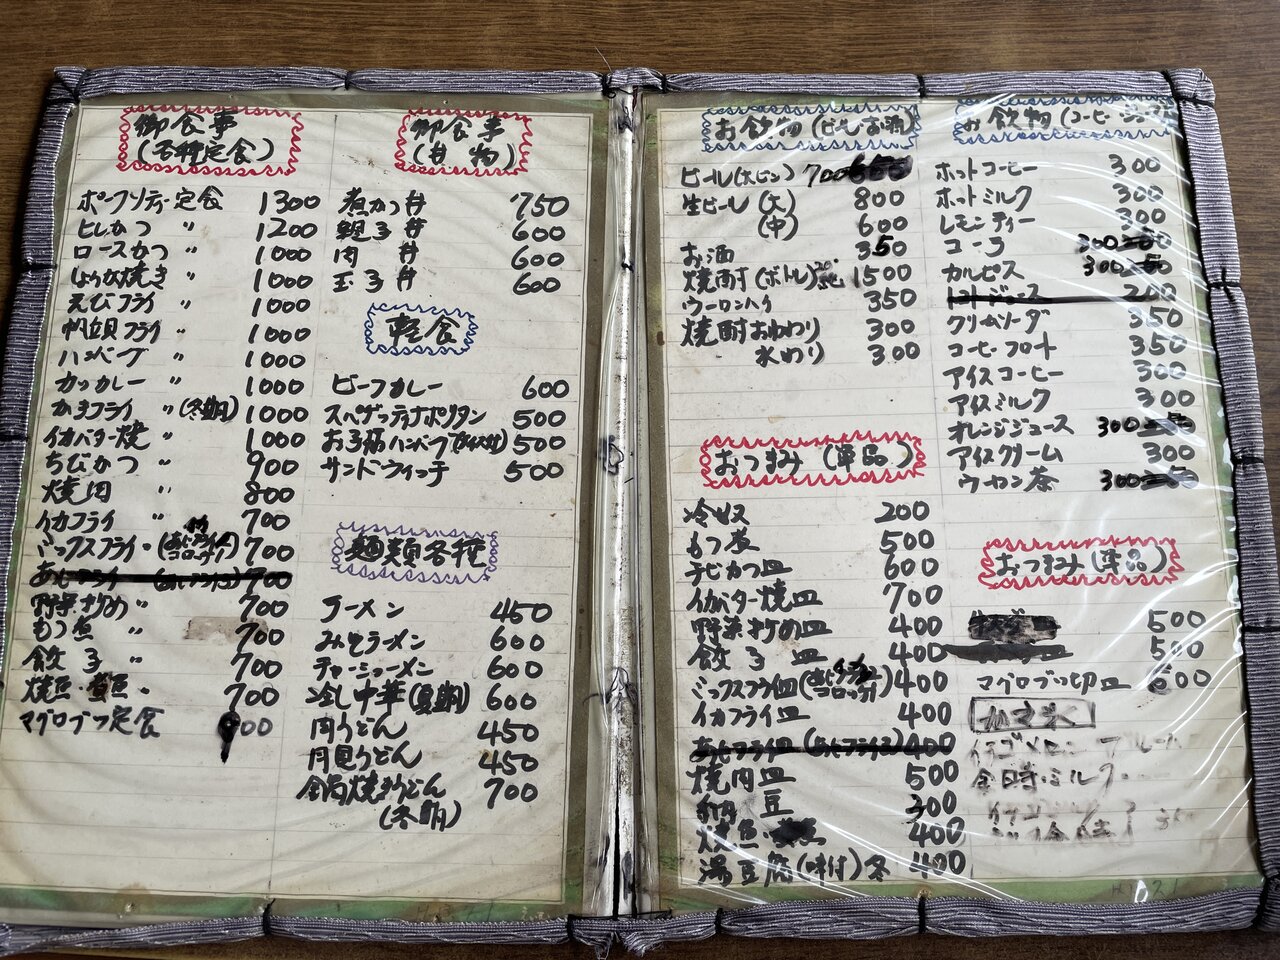 御食事
(各種定食)
ポークソティー定食 1300
ヒレかつ 〃 1200
ロースかつ 〃 1000
しょうが焼き 〃 1000
えびフライ 〃 1000
帆立貝フライ 〃 1000
ハンバーグ 〃 1000
カツカレー 〃 1000
かきフライ 〃 (冬期) 1000
イカバター焼 〃 1000
ちびかつ 〃 900
焼肉 〃 800
イカフライ 〃 700
ミックスフライ 〃 700
コロッケ
あじフライ 700
野菜炒め 〃 700
もつ煮 〃 700
餃子 〃 700
焼魚・煮魚 〃 700
マグロブツ定食 900
御食事
(丼物)
煮かつ丼 750
親子丼 600
肉丼 600
玉子丼 600
軽食
ビーフカレー 600
スパゲッティナポリタン 500
お子様ハンバーグ(ライス付) 500
サンドウィッチ 500
麺類各種
ラーメン 450
みそラーメン 600
チャーシューメン 600
冷し中華(夏期) 600
肉うどん 450
月見うどん 450
鍋焼きうどん 700
(冬期)
お飲物(ビール・お酒)
ビール(大ビン) 700
生ビール (大) 800
(中) 600
お酒 350
焼酎(ボトル) 1500
ウーロンハイ 350
焼酎お湯わり 300
水わり 300
おつまみ(単品)
冷奴 200
もつ煮 500
チビかつ皿 600
イカバター焼皿 700
野菜炒め皿 400
餃子皿 400
ミックスフライ皿 400
コロッケ
イカフライ皿 400
あじフライ皿 400
焼肉皿 500
納豆 300
焼魚・ 400
湯豆腐(味付)冬 400
お飲物(コーヒー
ホットコーヒー 300
ホットミルク 300
レモンティー 300
コーラ 300
カルピス 300
トマトジュース 200
クリームソーダ 350
コーヒーフロート 350
アイスコーヒー 300
アイスミルク 300
オレンジジュース 300
アイスクリーム 300
ウーロン茶 300
おつまみ(単品)
500
500
マグロブツ切皿 600
かき氷
イチゴ メロン
金時・ミルク